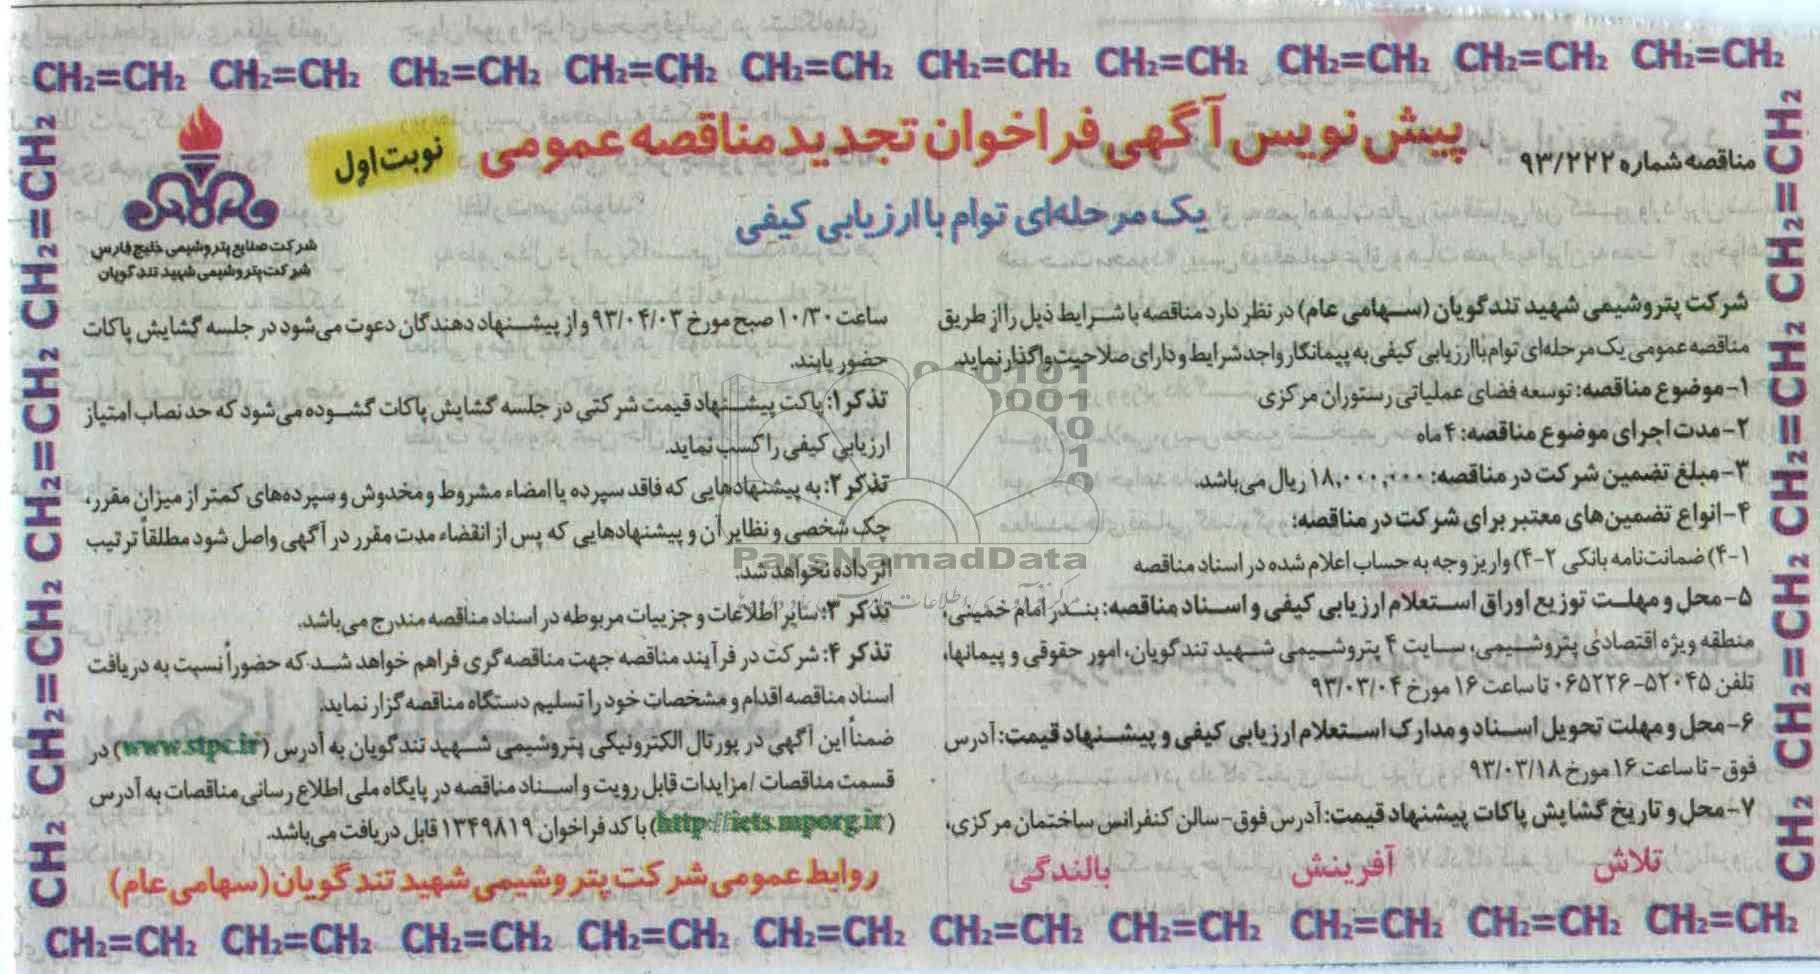 CH₂=CH₂ CH₂=CH₂ CH₂=CH₂ CH₂=CH₂ CH₂=CH₂ CH₂=CH₂ CH₂=CH₂ CH₂=CH₂ CH₂=CH₂ CH₂=CH₂
مناقصه شماره ۹۳/۲۲۲
پیش نویس آگهی فراخوان تجدید مناقصه عمومی
نوبت اول
یک مرحله‌ای توام با ارزیابی کیفی
شرکت صنایع پتروشیمی خلیج فارس
شرکت پتروشیمی شهید تندگویان
شرکت پتروشیمی شهید تندگویان (سهامی عام) در نظر دارد مناقصه با شرایط ذیل را از طریق
مناقصه عمومی یک مرحله‌ای توام با ارزیابی کیفی به پیمانکار واجد شرایط و دارای صلاحیت واگذار نماید.
۱- موضوع مناقصه: توسعه فضای عملیاتی رستوران مرکزی
۲- مدت اجرای موضوع مناقصه: ۴ ماه
۳- مبلغ تضمین شرکت در مناقصه: ۱۸,۰۰۰,۰۰۰ ریال می‌باشد.
۴- انواع تضمین‌های معتبر برای شرکت در مناقصه:
۴-۱) ضمانت‌نامه بانکی ۴-۲) واریز وجه به حساب اعلام شده در اسناد مناقصه
۵- محل و مهلت توزیع اوراق استعلام ارزیابی کیفی و اسناد مناقصه: بندر امام خمینی،
منطقه ویژه اقتصادی پتروشیمی، سایت ۴ پتروشیمی شهید تندگویان، امور حقوقی و پیمانها،
تلفن ۵۲۰۴۵-۰۶۵۲۲۶ تا ساعت ۱۶ مورخ ۹۳/۰۳/۰۴
۶- محل و مهلت تحویل اسناد و مدارک استعلام ارزیابی کیفی و پیشنهاد قیمت: آدرس
فوق- تا ساعت ۱۶ مورخ ۹۳/۰۳/۱۸
۷- محل و تاریخ گشایش پاکات پیشنهاد قیمت: آدرس فوق- سالن کنفرانس ساختمان مرکزی،
ساعت ۱۰/۳۰ صبح مورخ ۹۳/۰۴/۰۳ و از پیشنهاد دهندگان دعوت می‌شود در جلسه گشایش پاکات
حضور یابند.
تذکر ۱: پاکت پیشنهاد قیمت شرکتی در جلسه گشایش پاکات گشوده می‌شود که حد نصاب امتیاز
ارزیابی کیفی را کسب نماید.
تذکر ۲: به پیشنهادهایی که فاقد سپرده یا امضاء مشروط و مخدوش و سپرده‌های کمتر از میزان مقرر،
چک شخصی و نظایر آن و پیشنهادهایی که پس از انقضاء مدت مقرر در آگهی واصل شود مطلقاً ترتیب
اثر داده نخواهد شد.
تذکر ۳: سایر اطلاعات و جزییات مربوطه در اسناد مناقصه مندرج می‌باشد.
تذکر ۴: شرکت در فرآیند مناقصه جهت مناقصه‌گری فراهم خواهد شد که حضوراً نسبت به دریافت
اسناد مناقصه اقدام و مشخصات خود را تسلیم دستگاه مناقصه گزار نماید.
ضمناً این آگهی در پورتال الکترونیکی پتروشیمی شهید تندگویان به آدرس (www.stpc.ir) در
قسمت مناقصات /مزایدات قابل رویت و اسناد مناقصه در پایگاه ملی اطلاع رسانی مناقصات به آدرس
(http://iets.mporg.ir) با کد فراخوان ۱۳۴۹۸۱۹ قابل دریافت می‌باشد.
تلاش آفرینش بالندگی
روابط عمومی شرکت پتروشیمی شهید تندگویان (سهامی عام)
ParsNamadData
CH₂=CH₂ CH₂=CH₂ CH₂=CH₂ CH₂=CH₂ CH₂=CH₂ CH₂=CH₂ CH₂=CH₂ CH₂=CH₂ CH₂=CH₂ CH₂=CH₂
CH₂ CH₂=CH₂ CH₂=CH₂ CH₂=CH₂ CH₂=CH₂
CH₂ CH₂=CH₂ CH₂=CH₂ CH₂=CH₂ CH₂=CH₂